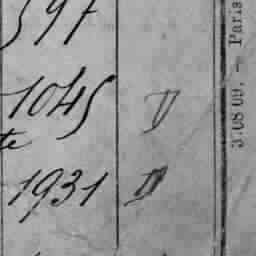 597
1045 V
te
1931 IV
3.08 09. - Paris